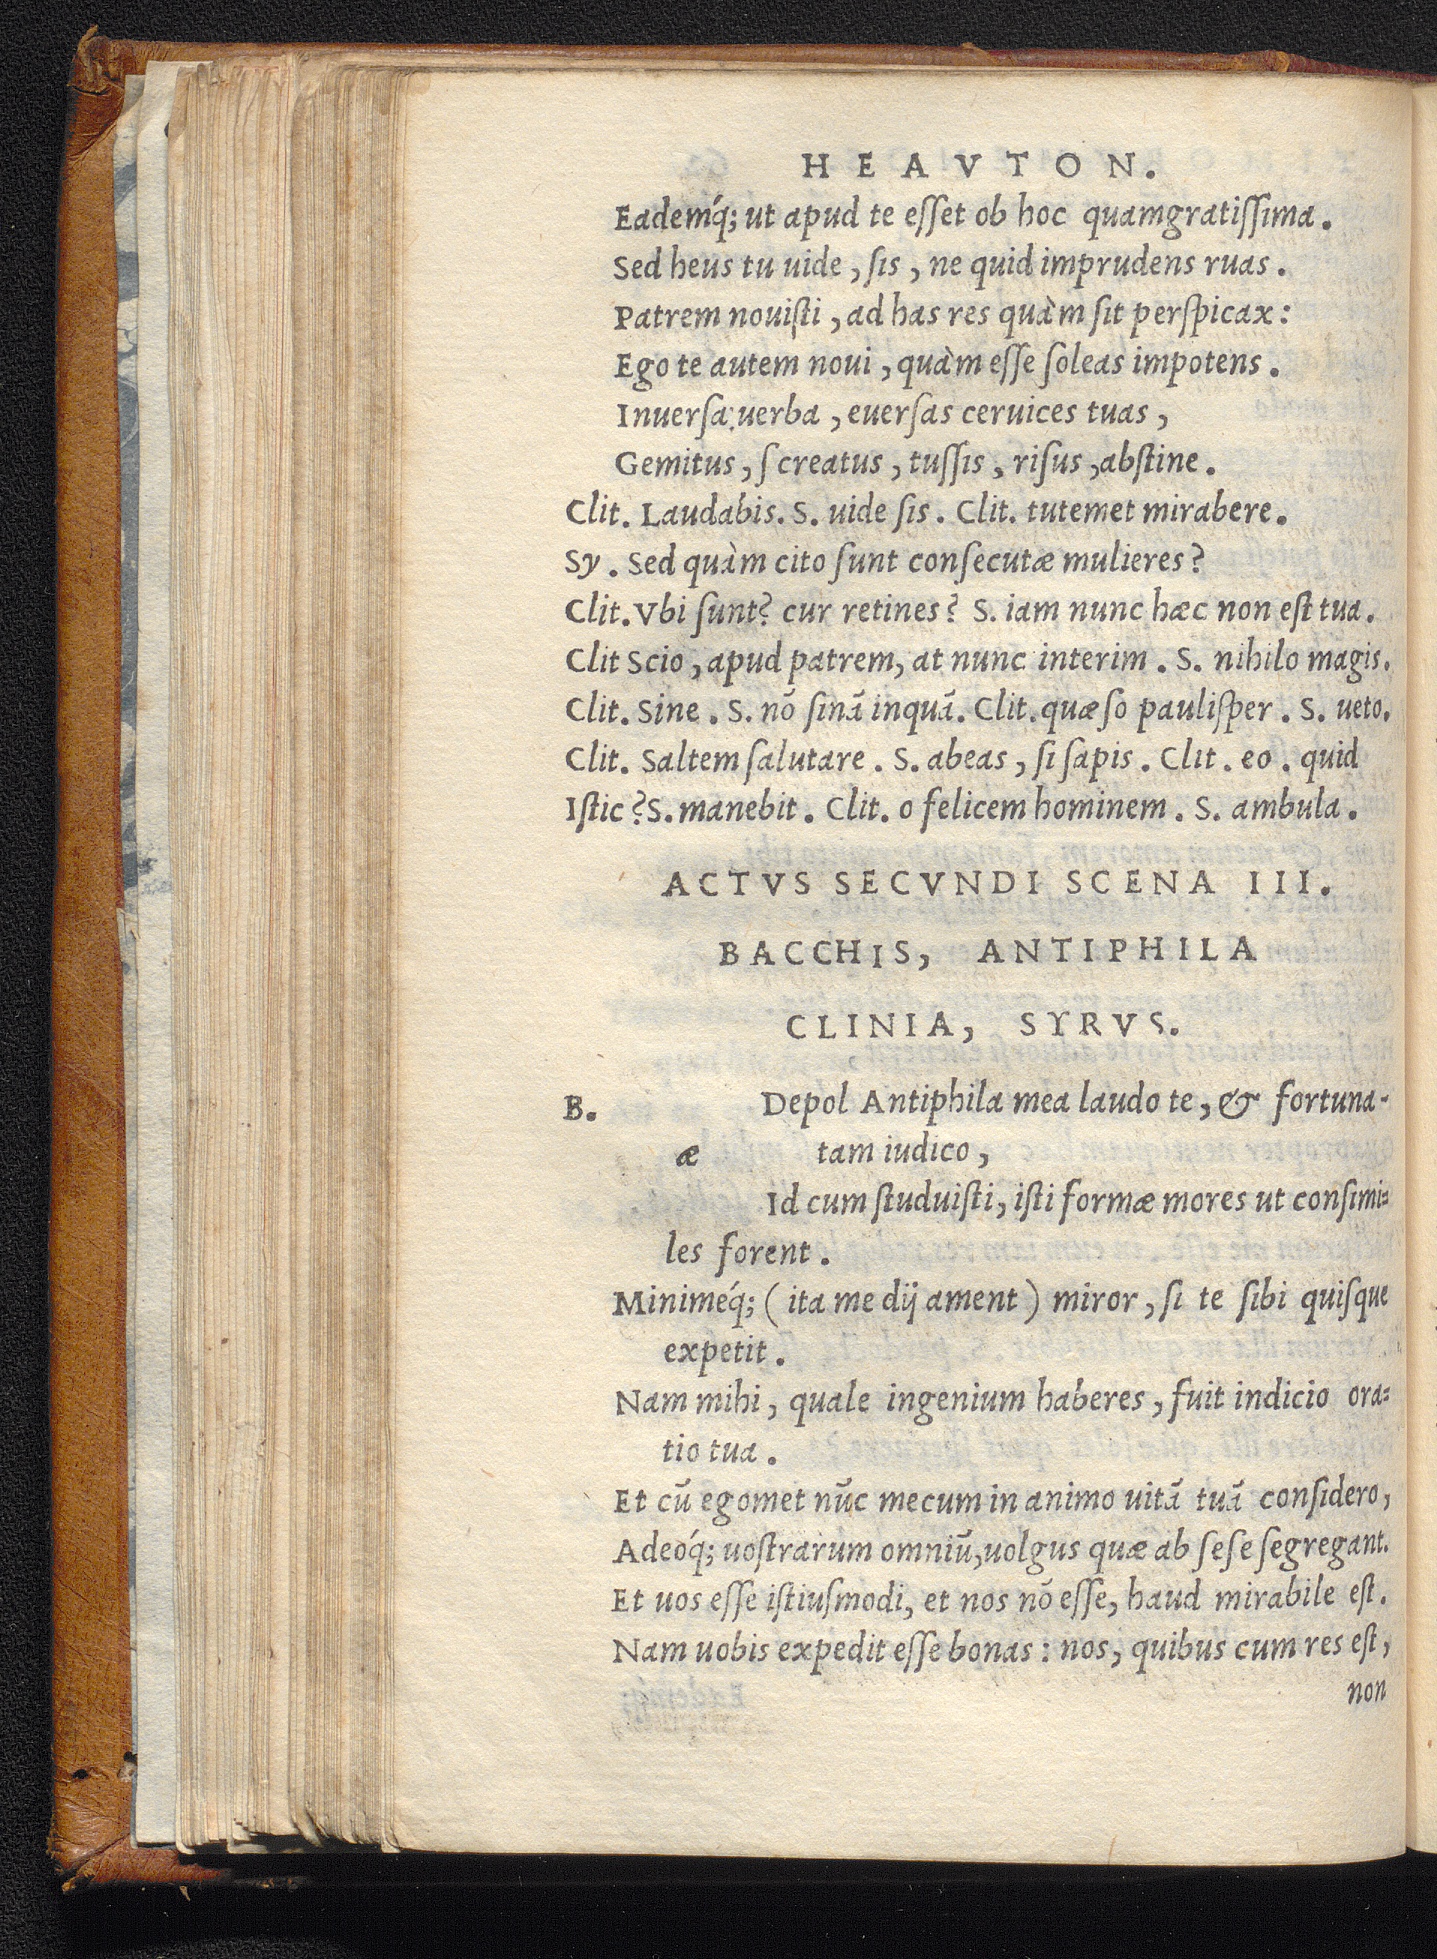 HEAVTON.
Eademq́; ut apud te eſſet ob hoc quamgratiſſima.
Sed heus tu uide, ſis, ne quid imprudens ruas.
Patrem nouiſti, ad has res quàm ſit perſpicax:
Ego te autem noui, quàm eſſe ſoleas impotens.
Inuerſa uerba, euerſas ceruices tuas,
Gemitus, ſcreatus, tuſſis, riſus, abſtine.
Clit. Laudabis. S. uide ſis. Clit. tutemet mirabere.
Sy. Sed quàm cito ſunt conſecutæ mulieres?
Clit. Vbi ſunt? cur retines? S. iam nunc hæc non eſt tua.
Clit Scio, apud patrem, at nunc interim. S. nihilo magis.
Clit. Sine. S. nō ſinā inquā. Clit. quæſo pauliſper. S. ueto.
Clit. Saltem ſalutare. S. abeas, ſi ſapis. Clit. eo. quid
Iſtic? S. manebit. Clit. o felicem hominem. S. ambula.
ACTVS SECVNDI SCENA III.
BACCHIS, ANTIPHILA
CLINIA, SYRVS.
B. æ Depol Antiphila mea laudo te, & fortuna-
tam iudico,
Id cum ſtuduiſti, iſti formæ mores ut conſimi-
les forent.
Minimeq́; (ita me dij ament) miror, ſi te ſibi quiſque
expetit.
Nam mihi, quale ingenium haberes, fuit indicio ora-
tio tua.
Et cū egomet nūc mecum in animo uitā tuā conſidero,
Adeoq́; uoſtrarum omniū, uolgus quæ ab ſeſe ſegregant.
Et uos eſſe iſtiuſmodi, et nos nō eſſe, haud mirabile eſt.
Nam uobis expedit eſſe bonas: nos, quibus cum res eſt,
non